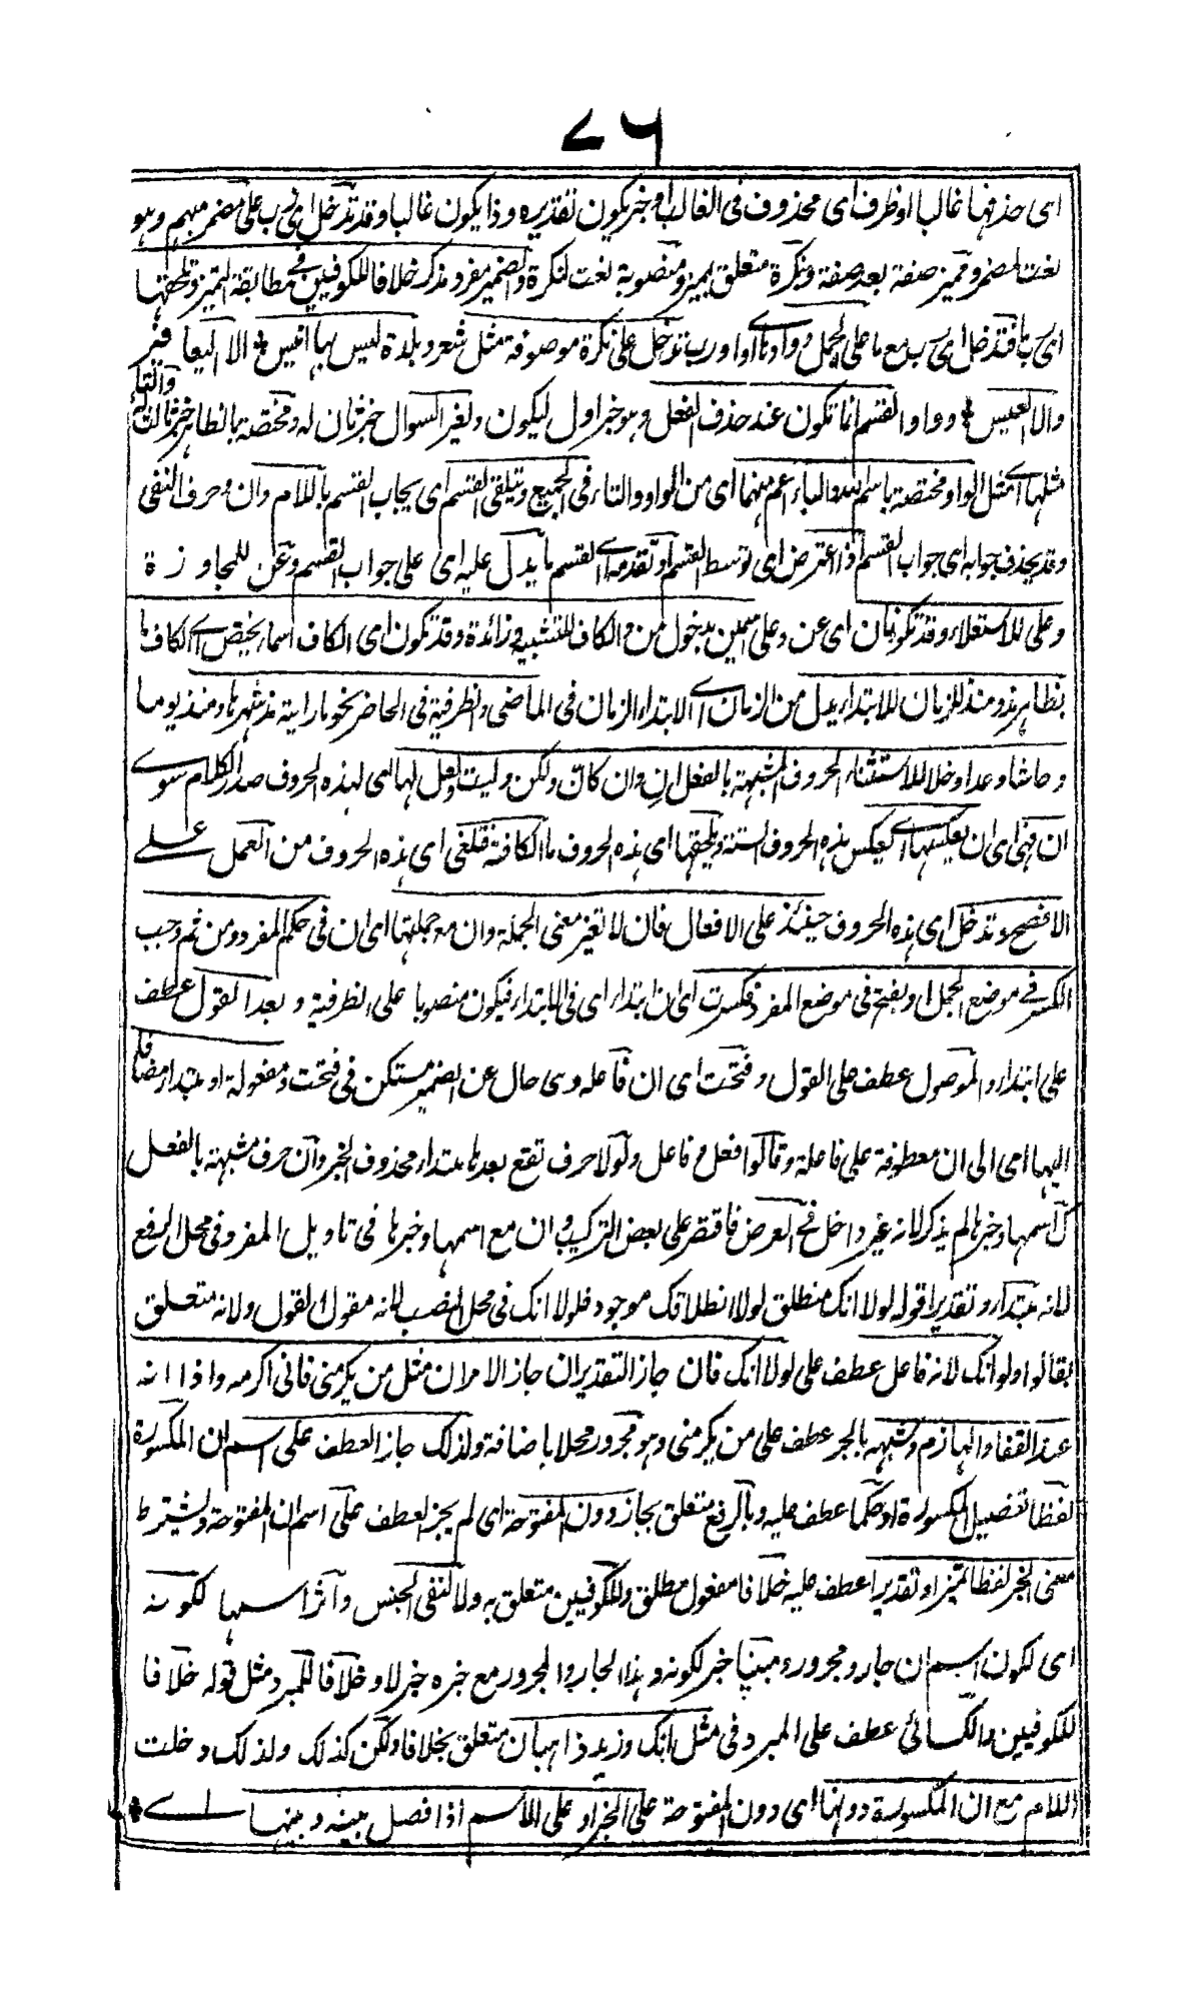 ٧٦
اى حذفها غالبا او ظرف اى محذوف فى الغالب او خبر يكون تقديره وذا يكون غالبا وقد تدخل اى رب على مضمر مبهم وهو
نعت مضمر ومميز صفة بعد صفة ونكرة متعلق بمميز ومنصوبة نعت لنكرة والضمير مفرد مذكر خلافا للكوفيين فى مطابقة التميز وتلحقها
اى رب ما فتدخل اى رب مع ما على الجمل وواوها اى واو رب تدخل على نكرة موصوفة مثل شعر وبلدة ليس بها انيس الا اليعافير
والا العيس وواو القسم انما تكون عند حذف الفعل وهو خبر اول ليكون ولغير السوال خبر ثان له ومختصة بالظاهر خبر ثالث له والتاء
مثلها اى مثل الواو مختصة باسم الله والباء اعم منهما اى من الواو والتاء فى الجميع ويتلقى القسم اى يجاب القسم باللام وان وحرف النفى
وقد يحذف جوابه اى جواب القسم اذا اعترض اى توسط القسم او تقدمه اى القسم ما يدل عليه اى على جواب القسم وعن للمجاوزة
وعلى للاستعلاء وقد تكونان اى عن وعلى اسمين بدخول من والكاف للتشبيه وزائدة وقد تكون اى الكاف اسما ويختص اى الكاف
بظاهر ومذ ومنذ للزمان للابتداء بدل من الزمان اى الابتداء الزمان فى الماضى والظرفية فى الحاضر نحو ما رايته مذ شهرنا ومنذ يومنا
وحاشا وعدا وخلا للاستثناء الحروف المشبهة بالفعل ان وان كان ولكن وليت ولعل لها اى لهذه الحروف صدر الكلام سوى
ان فهى اى ان بعكسها اى بعكس هذه الحروف الستة وتلحقها اى هذه الحروف ما الكافة فتلغى اى هذه الحروف من العمل على
الافصح وتدخل اى هذه الحروف حينئذ على الافعال فان لا تغير معنى الجملة وان مع جملتها اى ان فى حكم المفرد ومن ثم وجب
الكسر فى موضع الجمل او بفتح فى موضع المفرد فكسرت اى ان ابتداء اى فى الابتداء فيكون منصوبا على الظرفية وبعد القول عطف
على ابتداء والموصول عطف على القول وفتحت اى ان فاعله وهى حال عن الضمير مستكن فى فتحت ومفعولة او مبتداء مضافا
اليها اى الى ان معطوفة على فاعلة وقالوا فعل وفاعل ولولا حرف تقع بعدها مبتداء محذوف الخبر وان حرف مشبهة بالفعل
ك اسمها وخبرها لم يذكر لانه غير داخل فى الغرض فاقتصر على بعض التركيب وان مع اسمها وخبرها فى تاويل المفرد فى محل الرفع
لانه مبتداء وتقديرا قوله لولا انك منطلق لولا انطلاقك موجود فلولا انك فى محل النصب لانه مقول لقول ولانه متعلق
بقالوا ولو انك لانه فاعل عطف على لولا انك فان جاز التقديران جاز الامران مثل من يكرمنى فانى اكرمه واذا انه
عبد القفا واللهازم وشبهه بالجر عطف على من يكرمنى وهو مجرور محلا باضافة ولذلك جاز العطف على اسم ان المكسورة
لفظا تفصيل المكسورة او حكما عطف عليه وبالرفع متعلق بجاز دون المفتوحة اى لم يجز العطف على اسم ان المفتوحة ويشترط
معنى الخبر لفظا تميز او تقديرا عطف عليه خلافا مفعول مطلق وللكوفيين متعلق به ولا لنفى الجنس واثرا اسمها لكونه
اى لكون اسم ان جار ومجرورة مبنيا خبر لكونه وهذا الجار والمجرور مع خبره خبر لا وخلافا للمبرد مثل قوله خلافا
للكوفيين والكسائى عطف على المبرد فى مثل انك وزيد ذاهبان متعلق بخلافا ولكن كذلك ولذلك دخلت
اللام مع ان المكسورة دونها اى دون المفتوحة على الخبر او على الاسم اذا فصل بينه وبينها اى